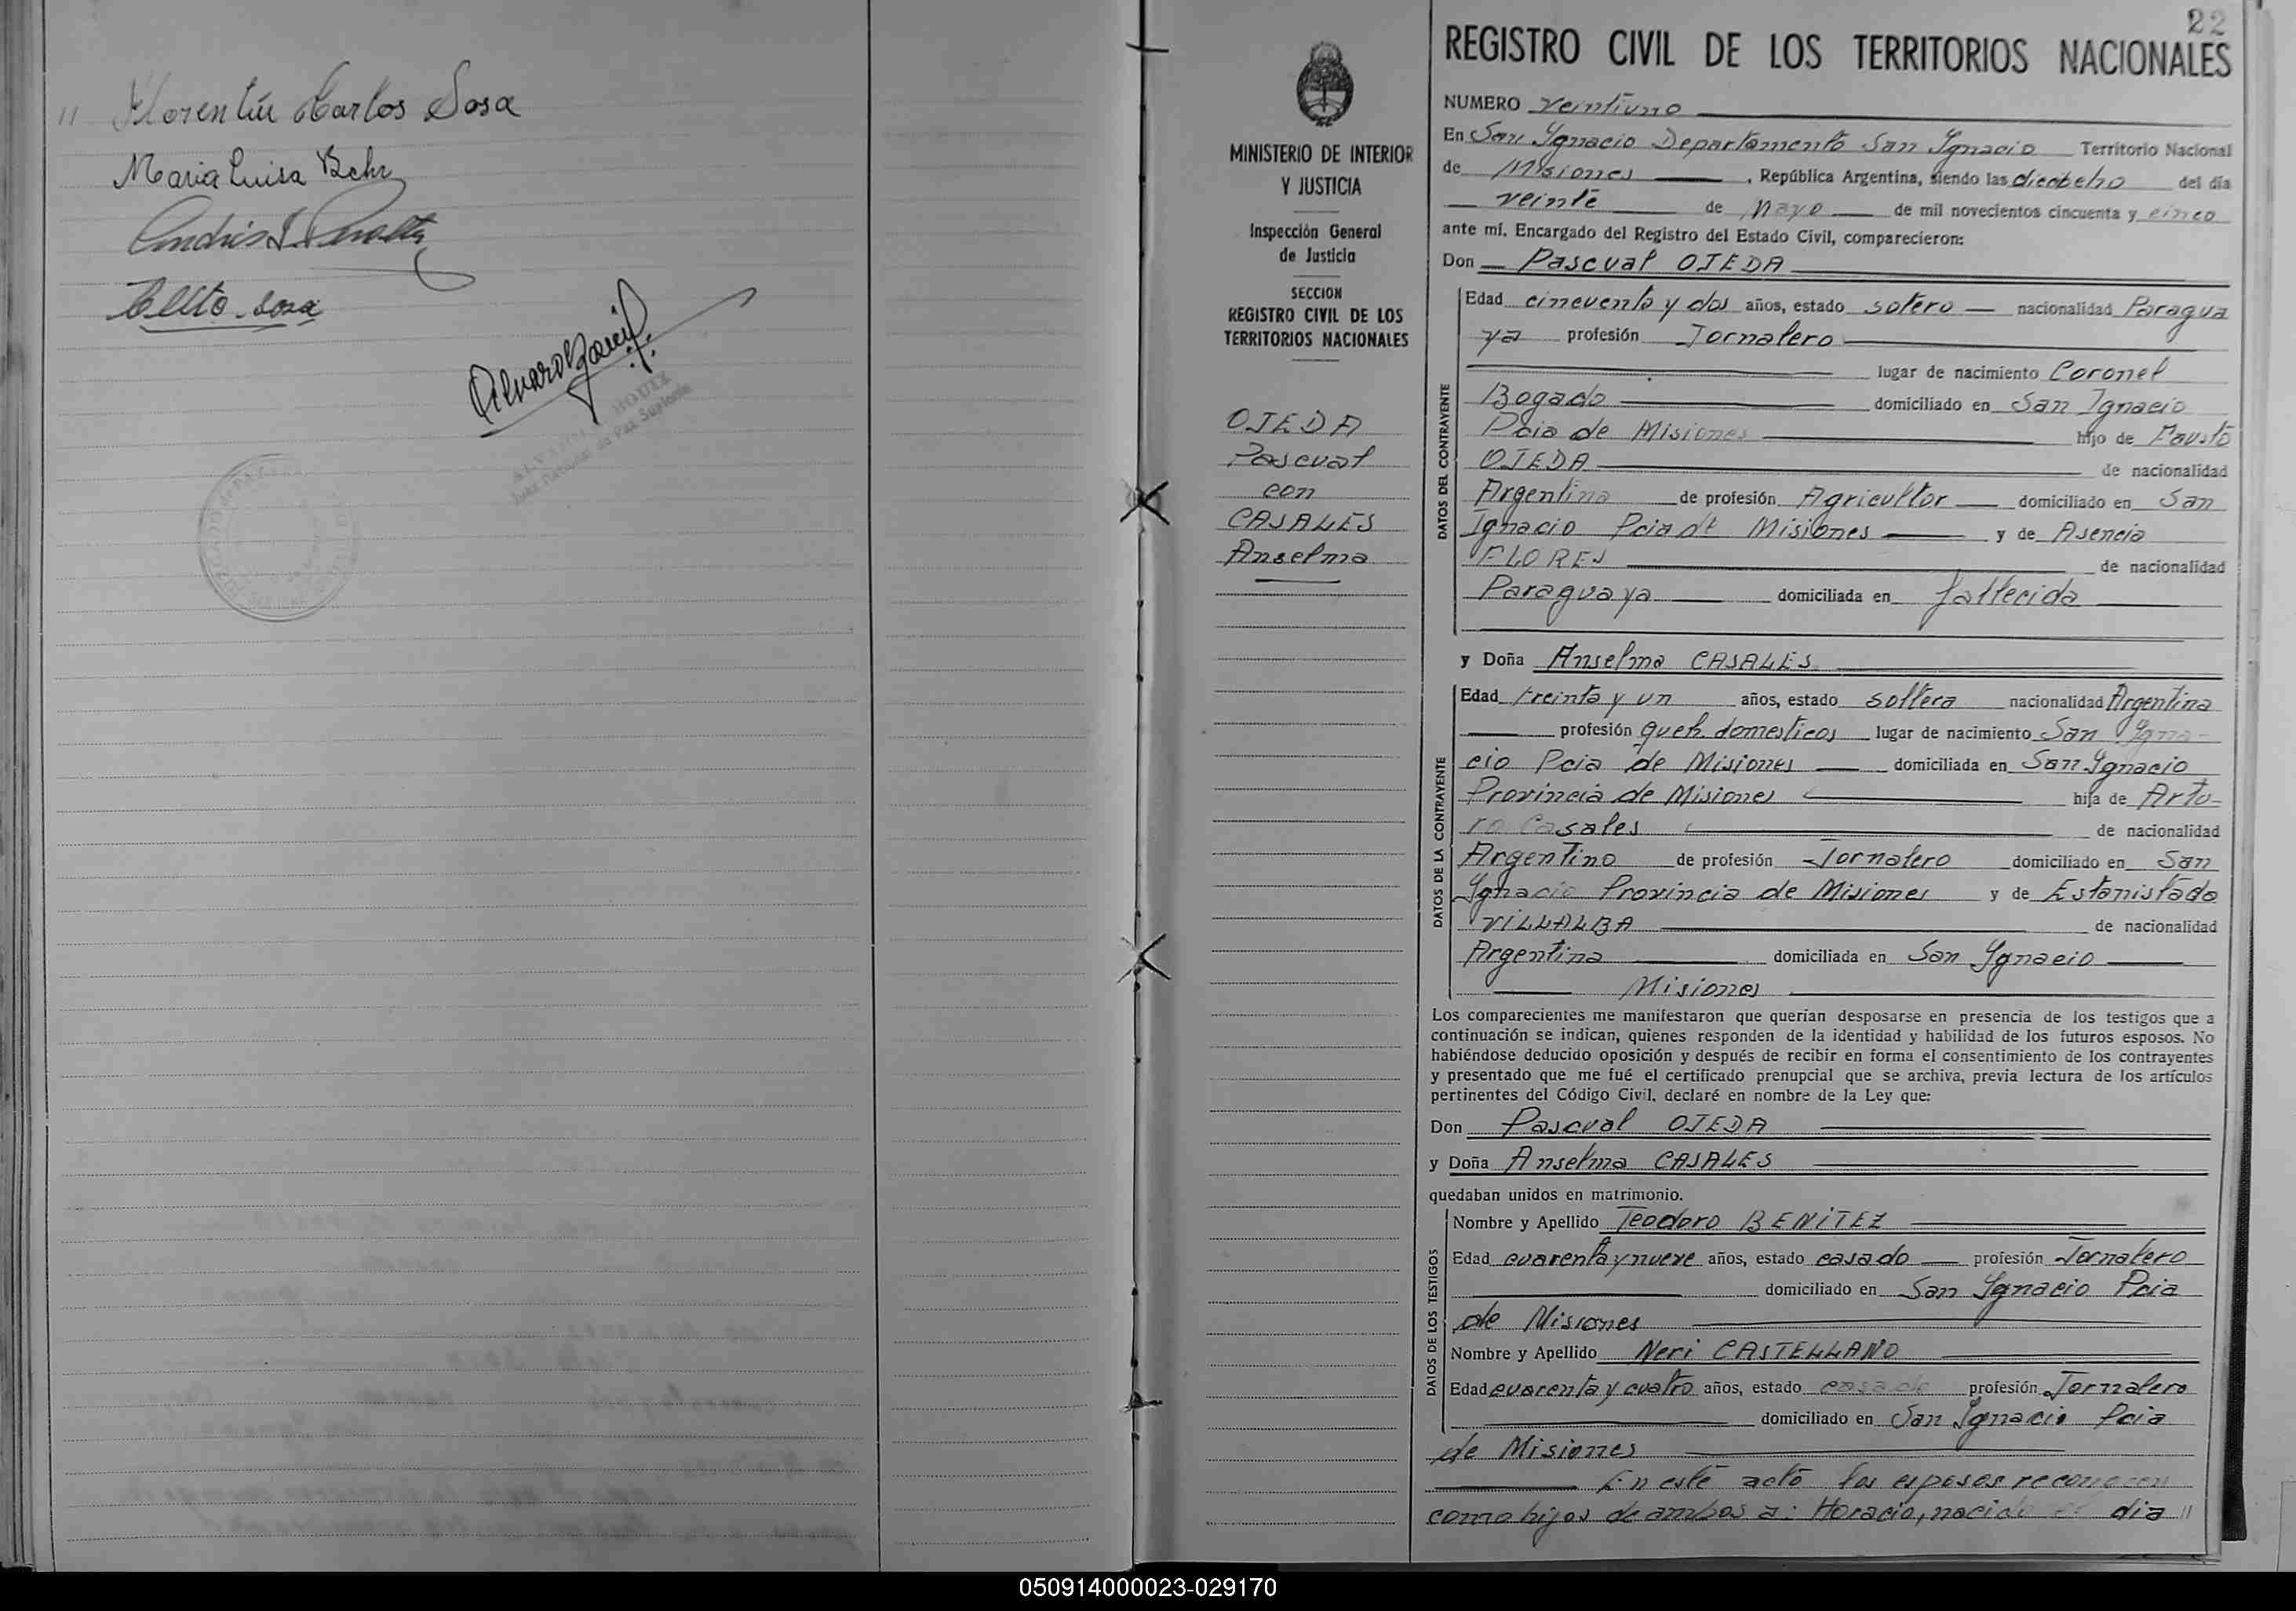 " Florentín Carlos Sosa
Maria Luisa Behr
Andrés I. Peralta
Celito Sosa
JUZGADO de PAZ
22
MINISTERIO DE INTERIOR
Y JUSTICIA
Inspección General
de Justicia
SECCION
REGISTRO CIVIL DE LOS
TERRITORIOS NACIONALES
OJEDA
Pascual
con
CASALES
Anselma
REGISTRO CIVIL DE LOS TERRITORIOS NACIONALES
NUMERO Veintiuno
En San Ygnacio Departamento San Ygnacio Territorio Nacional
de Misiones, República Argentina, siendo las dieciocho del día
veinte de Mayo de mil novecientos cincuenta y cinco
ante mí, Encargado del Registro del Estado Civil, comparecieron:
Don Pascual OJEDA
DATOS DEL CONTRAYENTE
Edad cincuenta y dos años, estado soltero nacionalidad Paragua
ya profesión Jornalero
lugar de nacimiento Coronel
Bogado domiciliado en San Ignacio
Pcia de Misiones hijo de Fausto
OJEDA de nacionalidad
Argentina de profesión Agricultor domiciliado en San
Ignacio Pcia de Misiones y de Asencia
FLORES de nacionalidad
Paraguaya domiciliada en fallecida
y Doña Anselma CASALES
DATOS DE LA CONTRAYENTE
Edad treinta y un años, estado soltera nacionalidad Argentina
profesión queh. domesticos lugar de nacimiento San Ygna-
cio Pcia de Misiones domiciliada en San Ygnacio
Provincia de Misiones hija de Artu-
ro Casales de nacionalidad
Argentino de profesión Jornalero domiciliado en San
Ygnacio Provincia de Misiones y de Estanislada
VILLALBA de nacionalidad
Argentina domiciliada en San Ygnacio
Misiones
Los comparecientes me manifestaron que querían desposarse en presencia de los testigos que a
continuación se indican, quienes responden de la identidad y habilidad de los futuros esposos. No
habiéndose deducido oposición y después de recibir en forma el consentimiento de los contrayentes
y presentado que me fué el certificado prenupcial que se archiva, previa lectura de los artículos
pertinentes del Código Civil, declaré en nombre de la Ley que:
Don Pascual OJEDA
y Doña Anselma CASALES
quedaban unidos en matrimonio.
DATOS DE LOS TESTIGOS
Nombre y Apellido Teodoro BENITEZ
Edad cuarenta y nueve años, estado casado profesión Jornalero
domiciliado en San Ygnacio Pcia
de Misiones
Nombre y Apellido Neri CASTELLANO
Edad cuarenta y cuatro años, estado casado profesión Jornalero
domiciliado en San Ignacio Pcia
de Misiones
En este acto los esposos reconocen
como hijos de ambos a: Horacio, nacido el dia "
050914000023-029170